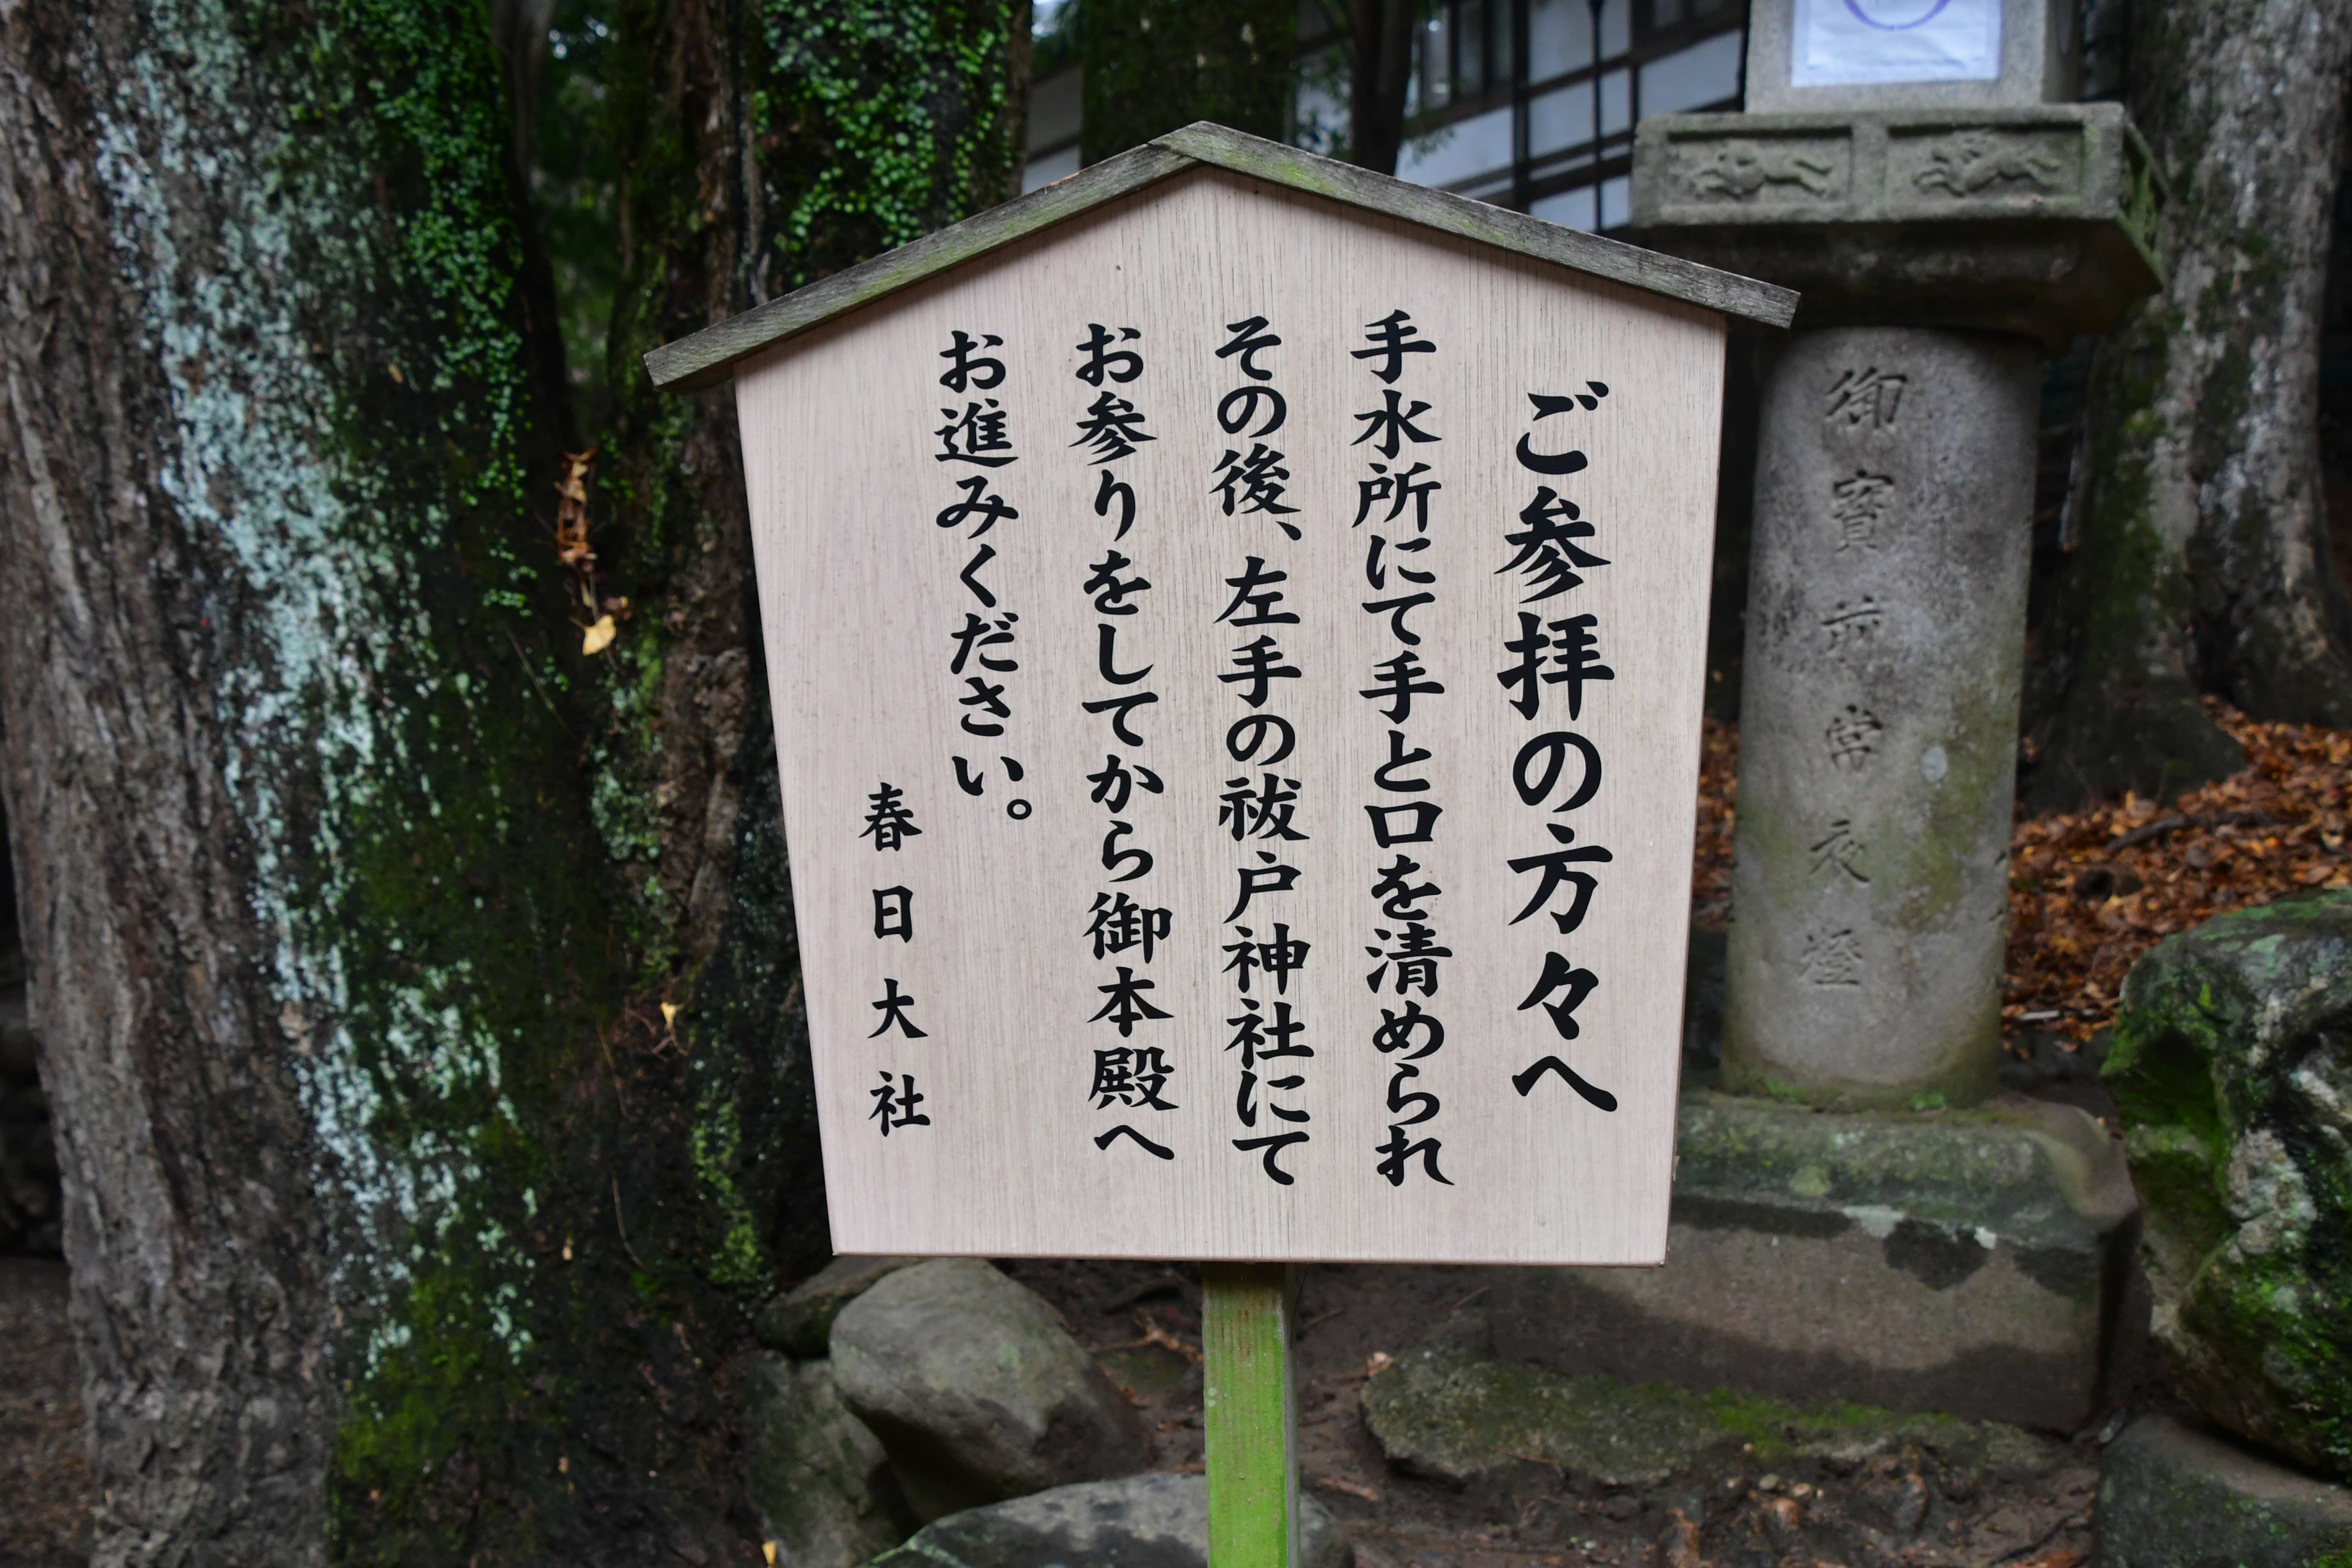 ご参拝の方々へ
手水所にて手と口を清められ
その後、左手の祓戸神社にて
お参りをしてから御本殿へ
お進みください。
春日大社
御寳前常夜燈